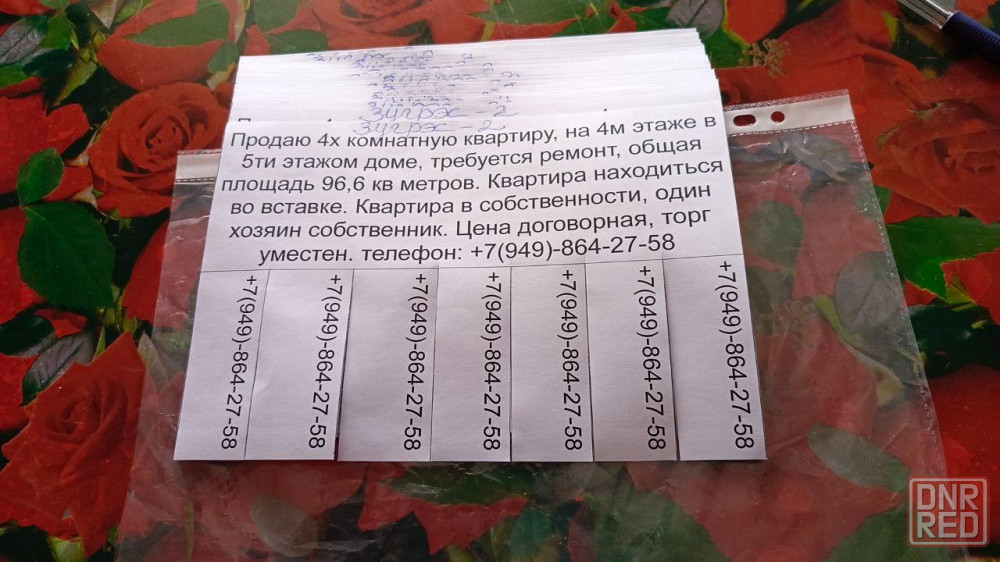 Зугрэс - 2
Зугрэс - 2
Продаю 4х комнатную квартиру, на 4м этаже в
5ти этажом доме, требуется ремонт, общая
площадь 96,6 кв метров. Квартира находиться
во вставке. Квартира в собственности, один
хозяин собственник. Цена договорная, торг
уместен. телефон: +7(949)-864-27-58
+7(949)-864-27-58
+7(949)-864-27-58
+7(949)-864-27-58
+7(949)-864-27-58
+7(949)-864-27-58
+7(949)-864-27-58
+7(949)-864-27-58
DNR
RED